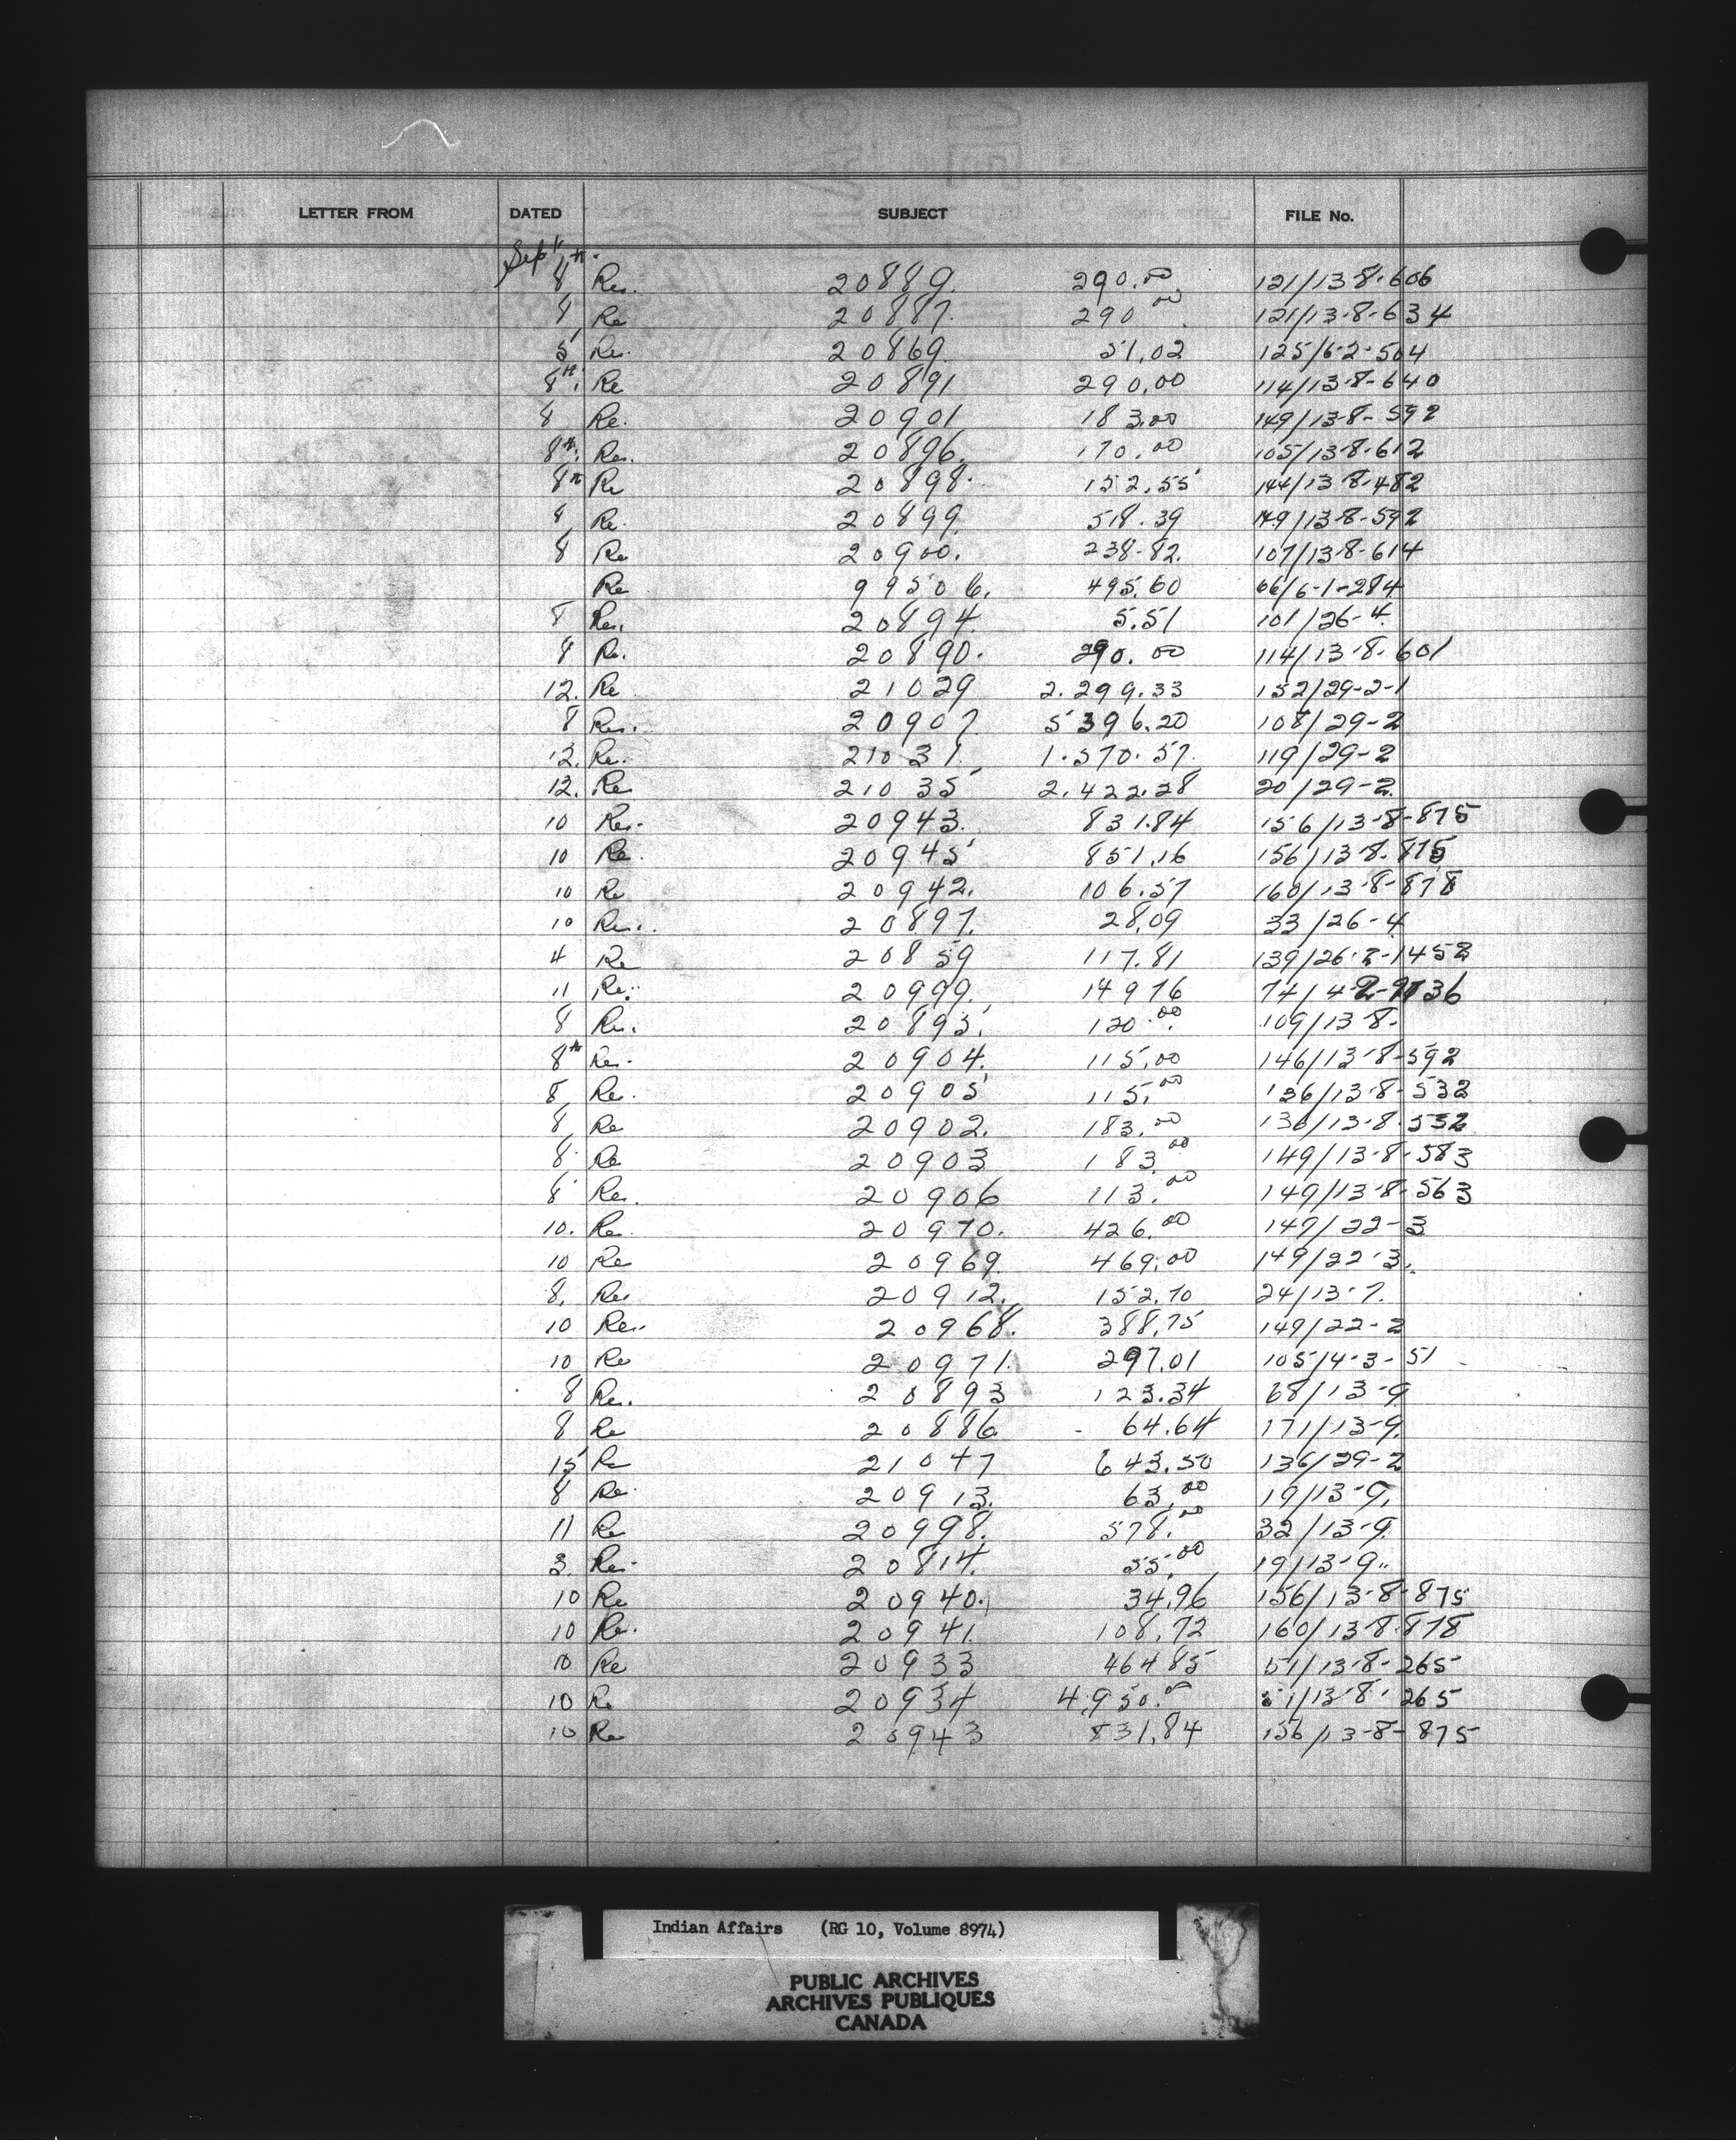 LETTER FROM DATED SUBJECT FILE No.
Sept
8th. Re. 20889. 290.00 121/13-8-606
8 Re 20887. 290 00 121/13-8-634
5 Re. 20869. 51.02 125/6-2-504
8th. Re 20891 290.00 114/13-8-640
8 Re. 20901 183.00 149/13-8-592
8th. Re. 20896. 170.00 105/13-8-612
8th Re 20898. 152.55 144/13-8-482
8 Re. 20899. 518.39 149/13-8-592
8 Re 20900. 238-82. 107/13-8-614
Re 99506. 495.60 66/6-1-284
8 Re. 20894. 5.51 101/26-4.
8 Re. 20890. 290.00 114/13-8-601
12. Re 21029 2.299.33 152/29-2-1
8 Re. 20907 5396.20 108/29-2
12. Re. 21031. 1.570.57. 119/29-2
12. Re 21035 2.422.28 20/29-2.
10 Re. 20943. 831.84 156/13-8-875
10 Re. 20945 851.16 156/13-8-875
10 Re 20942. 106.57 160/13-8-878
10 Re. 20897. 28.09 33/26-4
4 Re 20859 117.81 139/26-2-1458
11 Re. 20999. 14976 74/4-2-
8 Re. 20895. 120.00 109/13-8.
8th Re. 20904. 115.00 146/13-8-592
8 Re. 20905 115.00 136/13-8-532
8 Re 20902. 183.00 136/13-8-532
8 Re 20903 183.00 149/13-8-583
8 Re. 20906 113.00 149/13-8-563
10. Re. 20970. 426.00 149/22-3
10 Re 20969. 469.00 149/22-3.
8. Re 20912. 152.70 24/13-7.
10 Re. 20968. 388.75 149/22-2
10 Re 20971. 297.01 105/4-3-51
8 Re. 20893 123.34 68/13-9
8 Re 20886. 64.64 171/13-9.
15 Re 21047 643.50 136/29-2
8 Re. 20913. 63.00 19/13-9.
11 Re 20998. 578.00 32/13-9.
3. Re. 20814. 55.00 19/13-9..
10 Re 20940. 34.96 156/13-8-875
10 Re. 20941. 108.72 160/13-8-878
10 Re 20933 464 85 51/13-8-265
10 Re 20934 4,950.00 51/13-8-265
10 Re 20943 831.84 156/13-8-875
Indian Affairs (RG 10, Volume 8974)
PUBLIC ARCHIVES
ARCHIVES PUBLIQUES
CANADA